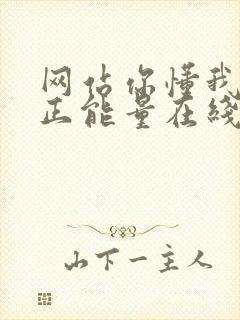 网占你懂我
正能量在线
山下一主人